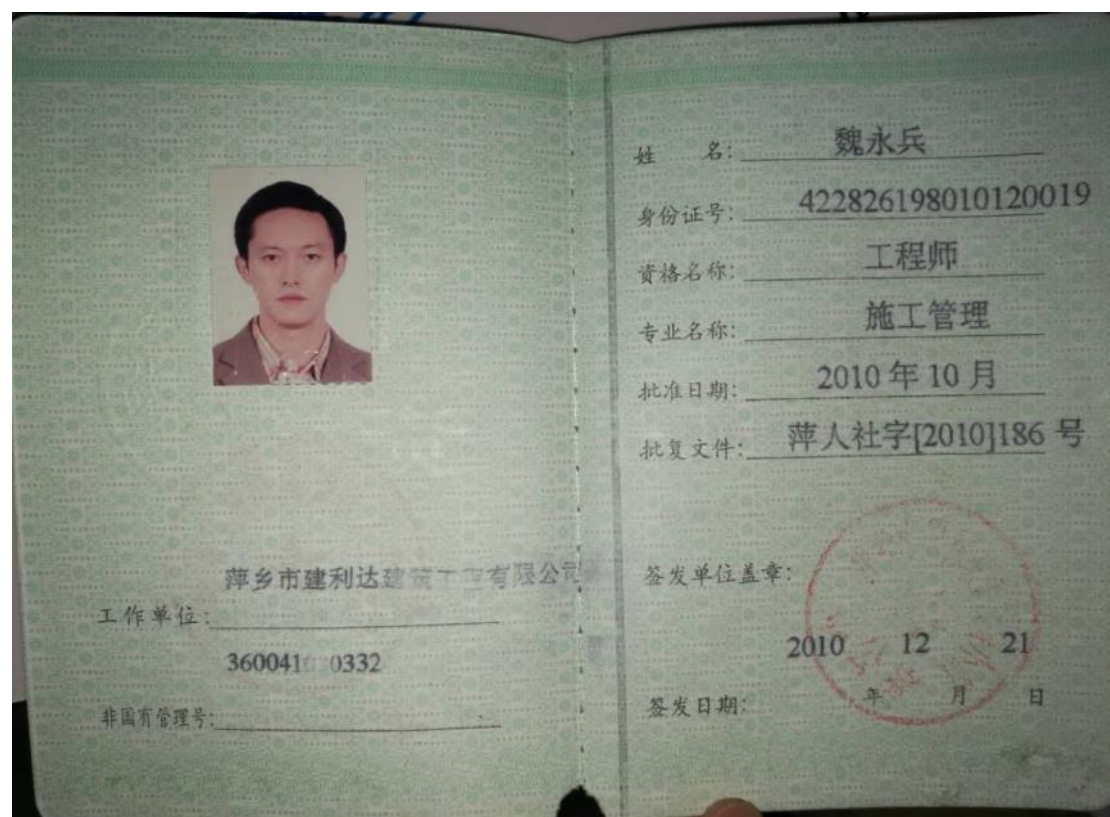 萍乡市建利达建筑工程有限公司
工作单位：
360041 0332
非国有管理号：
姓 名： 魏永兵
身份证号： 422826198010120019
资格名称： 工程师
专业名称： 施工管理
批准日期： 2010 年 10 月
批复文件： 萍人社字[2010]186 号
签发单位盖章：
2010 12 21
签发日期： 年 月 日